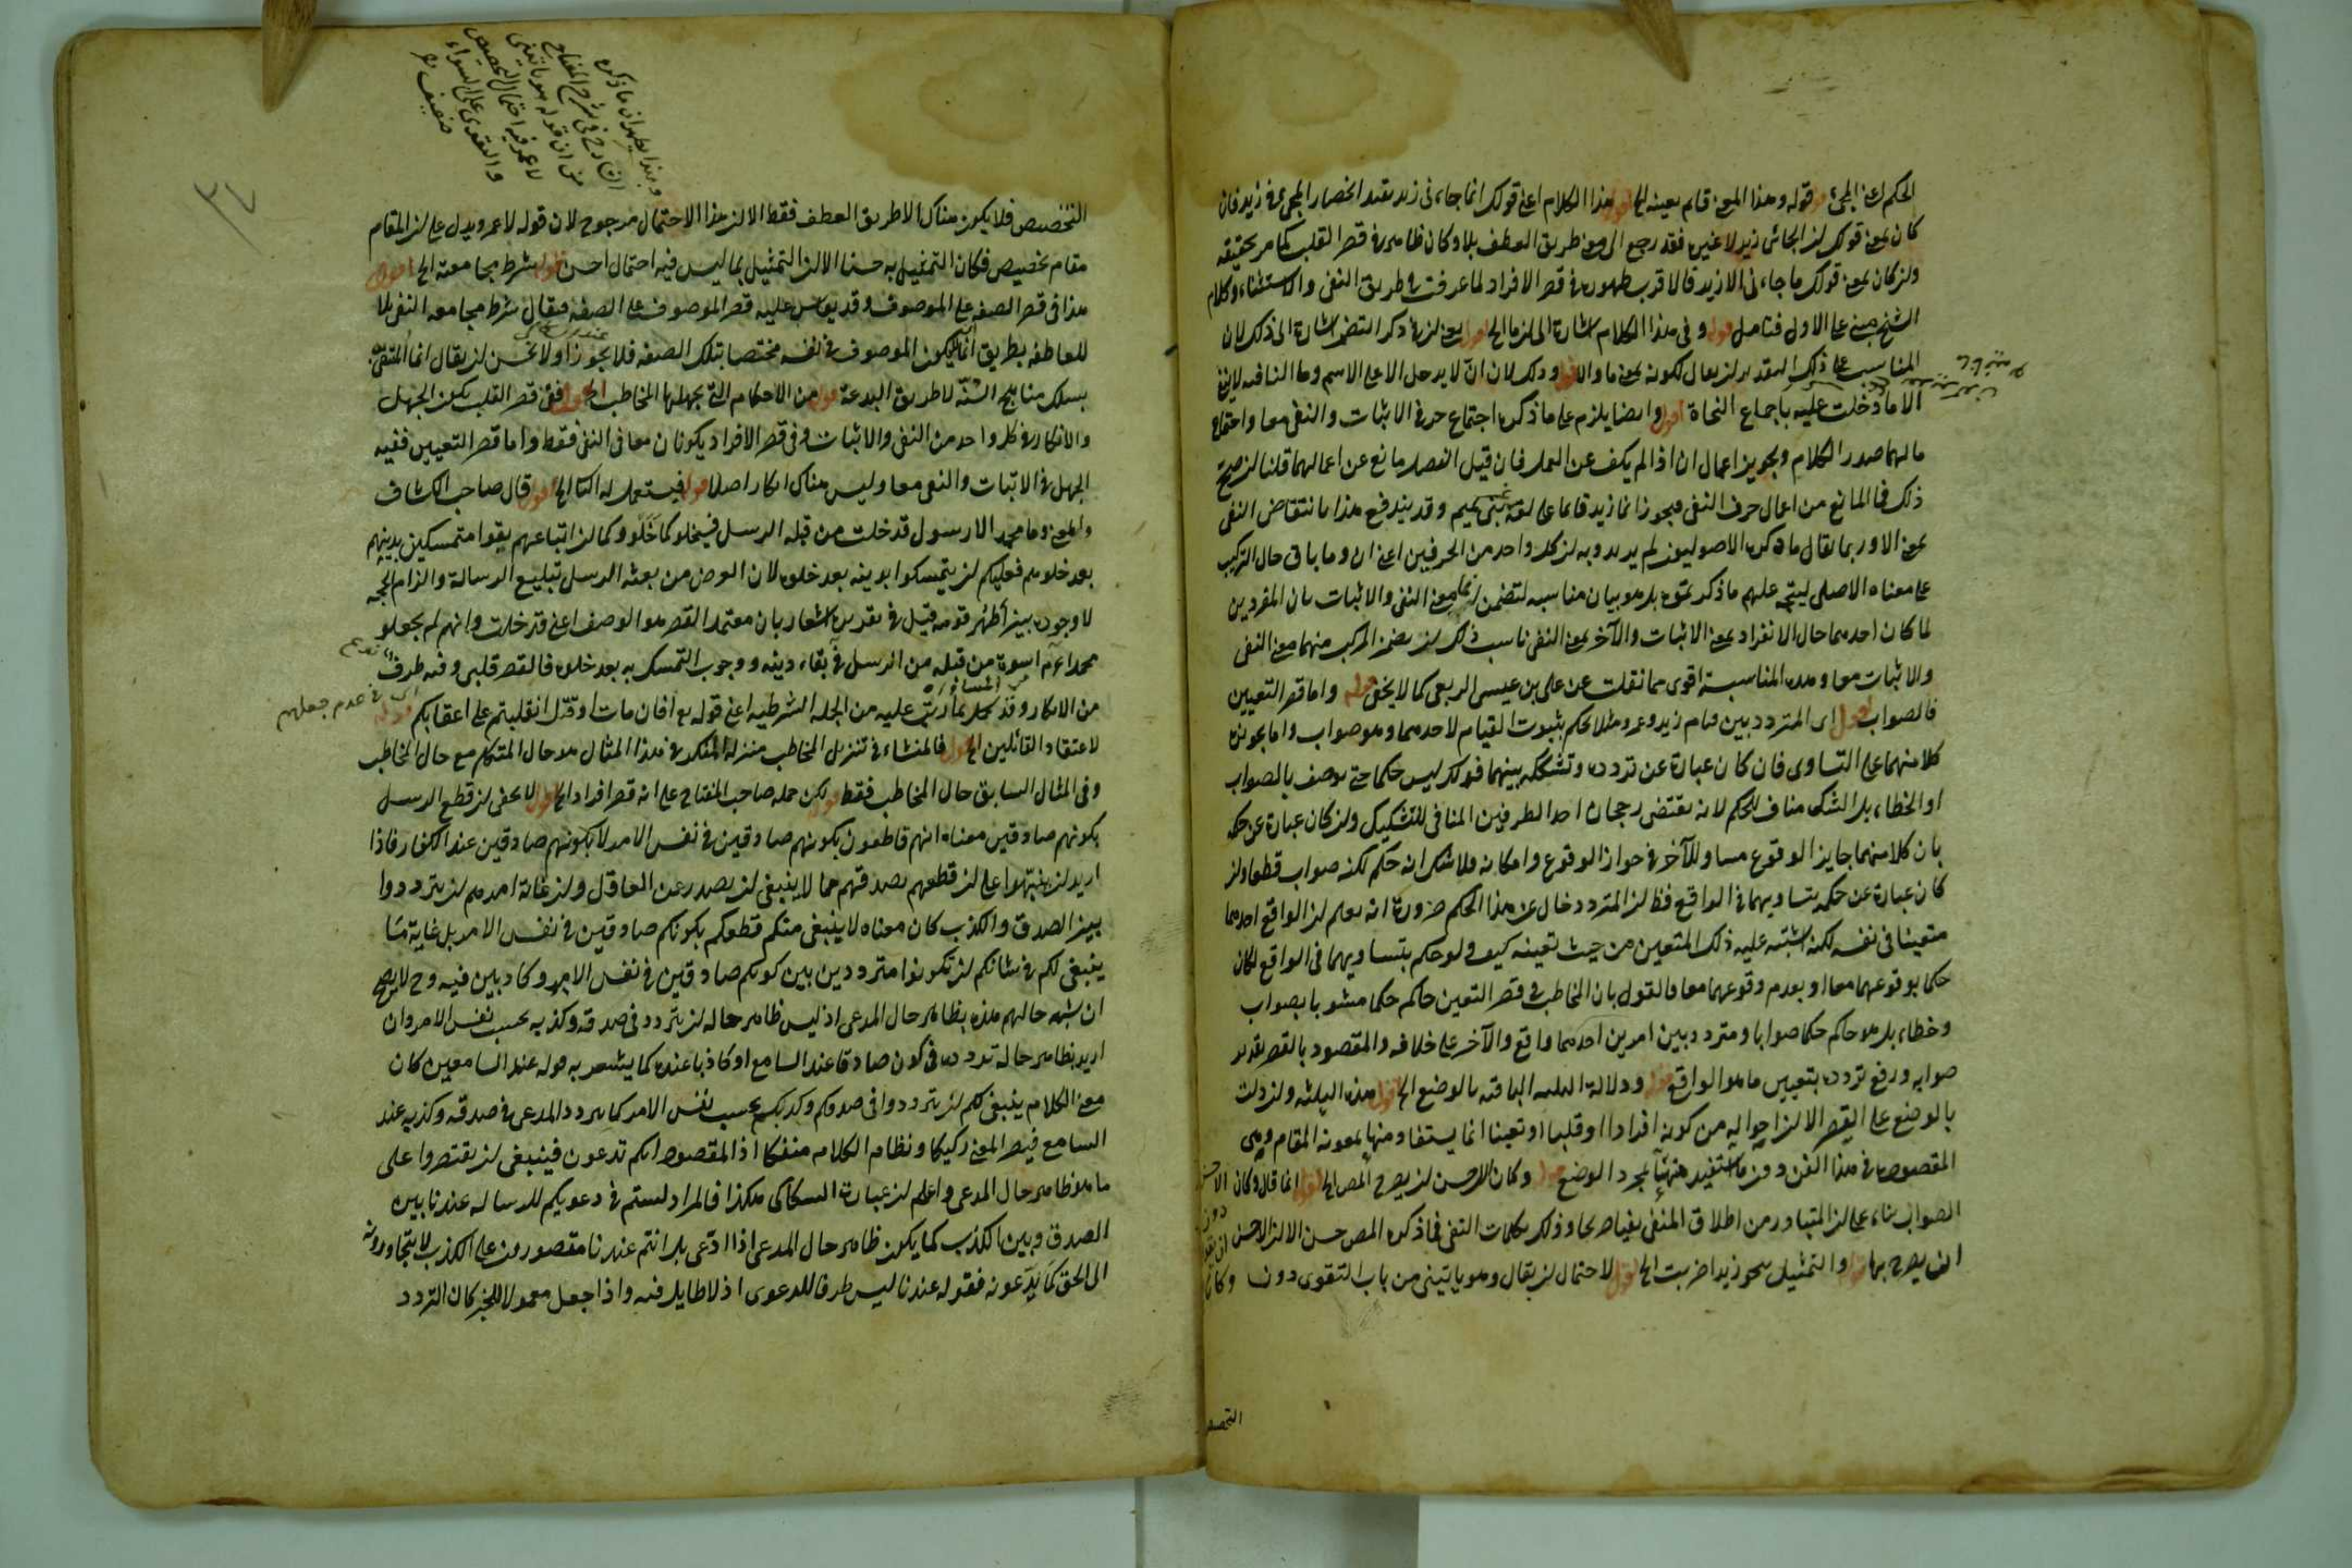 الحكم اعنى المجئ قوله وهذا المعنى قايم بعينه الخ اقول هذا الكلام اعنى قولك انما جاءنى زيد يفيد انحصار المجئ فى زيد فان
كان بمعنى قولك ان الجائى زيد لا غيره فقد رجع الى معنى طريق العطف بلا وكان ظاهره فى قصر القلب كما مر تحقيقه
وان كان بمعنى قولك ما جاءنى الا زيد فالاقرب ظهوره فى قصر الافراد لما عرفت فى طريق النفى والاستثناء وكلام
الشيخ مبنى على الاول فتامل قوله وفى هذا الكلام اشارة الى ان ما الخ اقول يعنى ان فى ذكر التضمن اشارة الى ذلك لان
المناسب على ذلك التقدير ان يقال لكونه بمعنى ما والا قوله وذلك لان ان لا يدخل الا على الاسم وما النافيه لا ينفى
الا ما دخلت عليه باجماع النحاة اقول وايضا يلزم على ما ذكره اجتماع حرفى الاثبات والنفى معا واجتماع
مالهما صدر الكلام وتجويز اعمال ان اذا لم يكف عن العمل فان قيل الفصل مانع عن اعمالهما قلنا ان صح
ذلك فما المانع من اعمال حرف النفى فيجوز انما زيد قائما على لغة غير بنى تميم وقد يندفع هذا بانتقاض النفى
بمعنى الا وربما يقال ما ذكره الاصوليون لم يريدوا به ان كل واحد من الحرفين اعنى ان وما باق حال التركيب
على معناه الاصلى ليتجه عليهم ما ذكر بتمامه بل هو بيان مناسبه لتضمن انما معنى النفى والاثبات بان المفردين
لما كان احدهما حال الانفراد بمعنى الاثبات والآخر بمعنى النفى ناسب ذلك ان يضمن المركب منهما معنى النفى
والاثبات معا وهذه المناسبة اقوى مما نقلت عن على بن عيسى الربعى كما لا يخفى قوله واما قصر التعيين
فالصواب اقول اى المتردد بين قيام زيد وعمرو مثلا يحكم بثبوت القيام لاحدهما وهو صواب واما تجويزه
كلا منهما على التساوى فان كان عبارة عن تردده وتشككه بينهما فذلك ليس حكما حتى يوصف بالصواب
او الخطاء بل الشك مناف للحكم لانه يقتضى رجحان احد الطرفين المنافى للتشكيك وان كان عبارة عن حكمه
بان كلا منهما جايز الوقوع مساو للآخر فى جواز الوقوع وامكانه فلا شك انه حكم لكنه صواب قطعا وان
كان عبارة عن حكمه بتساويهما فى الواقع فظ ان المتردد خال عن هذا الحكم ضرورة انه يعلم ان الواقع احدهما
متعينا فى نفسه لكنه اشتبه عليه ذلك المتعين من حيث تعينه كيف ولو حكم بتساويهما فى الواقع لكان
حكما بوقوعهما معا او بعدم وقوعهما معا فالقول بان المخاطب فى قصر التعيين حاكم حكما مشوبا بصواب
وخطاء بل هو حاكم حكما صوابا ومتردد بين امرين احدهما واقع والآخر على خلافه والمقصود بالقصر تقرير
صوابه ورفع تردده بتعيين ما هو الواقع قوله ودلالة الثلثه الباقيه بالوضع الخ اقول هذه الثلثه وان دلت
بالوضع على القصر الا ان احواله من كونه افرادا او قلبا او تعيينا انما يستفاد منها بمعونة المقام وهى
المقصود فى هذا الفن دون ما استفيد منها بمجرد الوضع قوله وكان الاحسن ان يصرح المص الخ اقول انما قال وكان الاحسن
الصواب بناء على ان المتبادر من اطلاق المنفى بغيرها وذلك بكلمات النفى فما ذكره المص حسن الا ان الاحسن
ان يصرح بها قوله والتمثيل بنحو زيدا ضربت الخ اقول لاحتمال ان يقال وهو ياتينى من باب التقوى دون
التخصيص
التخصيص فلا يكون هناك الا طريق العطف فقط الا ان هذا الاحتمال مرجوح لان قوله لا عمرو يدل على ان المقام
مقام تخصيص فكان التمثيل به حسنا الا ان التمثيل بما ليس فيه احتمال احسن قوله شرط مجامعته الخ اقول
هذا فى قصر الصفه على الموصوف وقد يقاس عليه قصر الموصوف على الصفه فيقال شرط مجامعه النفى بلا
العاطفه بطريق انما ان لا يكون الموصوف فى نفسه مختصا بتلك الصفه فلا يجوز او لا يحسن ان يقال انما المتقى
يسلك مناهج السنّة لا طريق البدعة قوله من الاحكام التى يجهلها المخاطب الخ اقول ففى قصر القلب يكون الجهل
والانكار فى كل واحد من النفى والاثبات وفى قصر الافراد يكونان معا فى النفى فقط واما قصر التعيين ففيه
الجهل فى الاثبات والنفى معا وليس هناك انكار اصلا قوله فيستعمل له الثانى الخ اقول قال صاحب الكشاف
والمعنى وما محمد الا رسول قد خلت من قبله الرسل فسيخلو كما خلوا وكما ان اتباعهم بقوا متمسكين بدينهم
بعد خلوهم فعليكم ان يتمسكوا بدينه بعد خلوه لان الغرض من بعثة الرسل تبليغ الرسالة والزام الحجه
لا وجوده بين اظهر قومه فيكون فى تقديره اشعار بان معتمد القصر هو الوصف اعنى قد خلت وانهم لم يجعلوا
محمدا عم اسوة من قبله من الرسل فى بقاء دينه ووجوب التمسك به بعد خلوه فالقصر قلبى وفيه طرف
من الانكار وقد تكمل بما رتب عليه من الجمله الشرطيه اعنى قوله تع أفان مات او قتل انقلبتم على اعقابكم قوله
لاعتقاد القائلين الخ اقول فالمنشاء فى تنزيل المخاطب منزله المنكر فى هذا المثال هو حال المتكلم مع حال المخاطب
وفى المثال السابق حال المخاطب فقط قوله لكن حمله صاحب المفتاح على انه قصر افراد الخ اقول لا يخفى ان قطع الرسل
بكونهم صادقين معناه انهم قاطعون بكونهم صادقين فى نفس الامر لا بكونهم صادقين عند الكفار فاذا
اريد ان ينبّهوا على ان قطعهم بصدقهم مما لا ينبغى ان يصدر عن العاقل وان غاية امرهم ان يترددوا
بين الصدق والكذب كان معناه لا ينبغى منكم قطعكم بكونكم صادقين فى نفس الامر بل غاية ما
ينبغى لكم فى شانكم ان تكونوا مترددين بين كونكم صادقين فى نفس الامر وكاذبين فيه وح لا يصح
ان يشبه حالهم هذه بظاهر حال المدعى اذ ليس ظاهر حاله ان يتردد فى صدقه وكذبه بحسب نفس الامر وان
اريد بظاهر حاله تردده فى كونه صادقا عند السامع او كاذبا عنده كما يشعر به قوله عند السامعين كان
معنى الكلام ينبغى لكم ان تترددوا فى صدقكم وكذبكم بحسب نفس الامر كما يتردد المدعى فى صدقه وكذبه عند
السامع فيصير المعنى ركيكا ونظام الكلام منفكا اذ المقصود انكم تدعون فينبغى ان يقتصروا على
ما هو ظاهر حال المدعى واعلم ان عبارة السكاكى هكذا فالمراد لستم فى دعويكم للرسالة عندنا بين
الصدق وبين الكذب كما يكون ظاهر حال المدعى اذا ادّعى بل انتم عندنا مقصورون على الكذب لا يتجاوزونه
الى الحق كما يدّعونه فقوله عندنا ليس ظرفا للدعوى اذ لا طايل فيه واذا جعل معمولا للخبر كان التردد
وبهذا يظهر ان ما ذكره
الشارح فى شرح المفتاح
من ان قوله هو ياتينى
لا عمرو فيه احتمال التخصيص
والتقوى على السواء
ضعيف
اى فى عدم جعلهم
٣٤